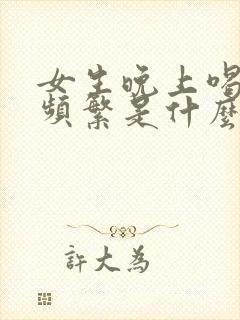 女生晚上喝
频繁是什麼
許大為